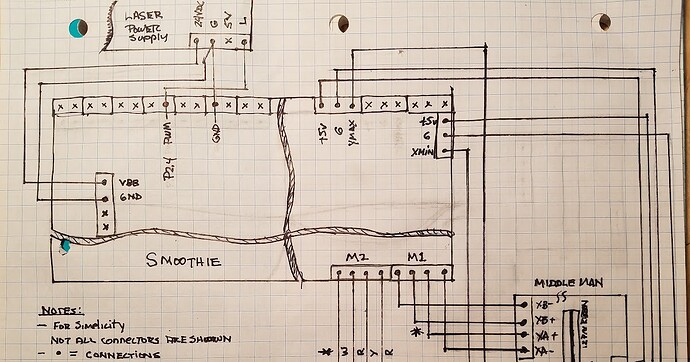 LASER
POWER
SUPPLY
24VDC
G
5V
L
X
X X X X X X X X X X X
X X X X X X
P2.4 PWM
GND
+5V
G
YMAX
+5V
G
XMIN
VBB
GND
X
X
SMOOTHIE
M2
M1
* W R Y R
*
MIDDLE MAN
XB-
XB+
XA+
XA-
NOTES:
- FOR SIMPLICITY
NOT ALL CONNECTORS ARE SHOWN
- • = CONNECTIONS